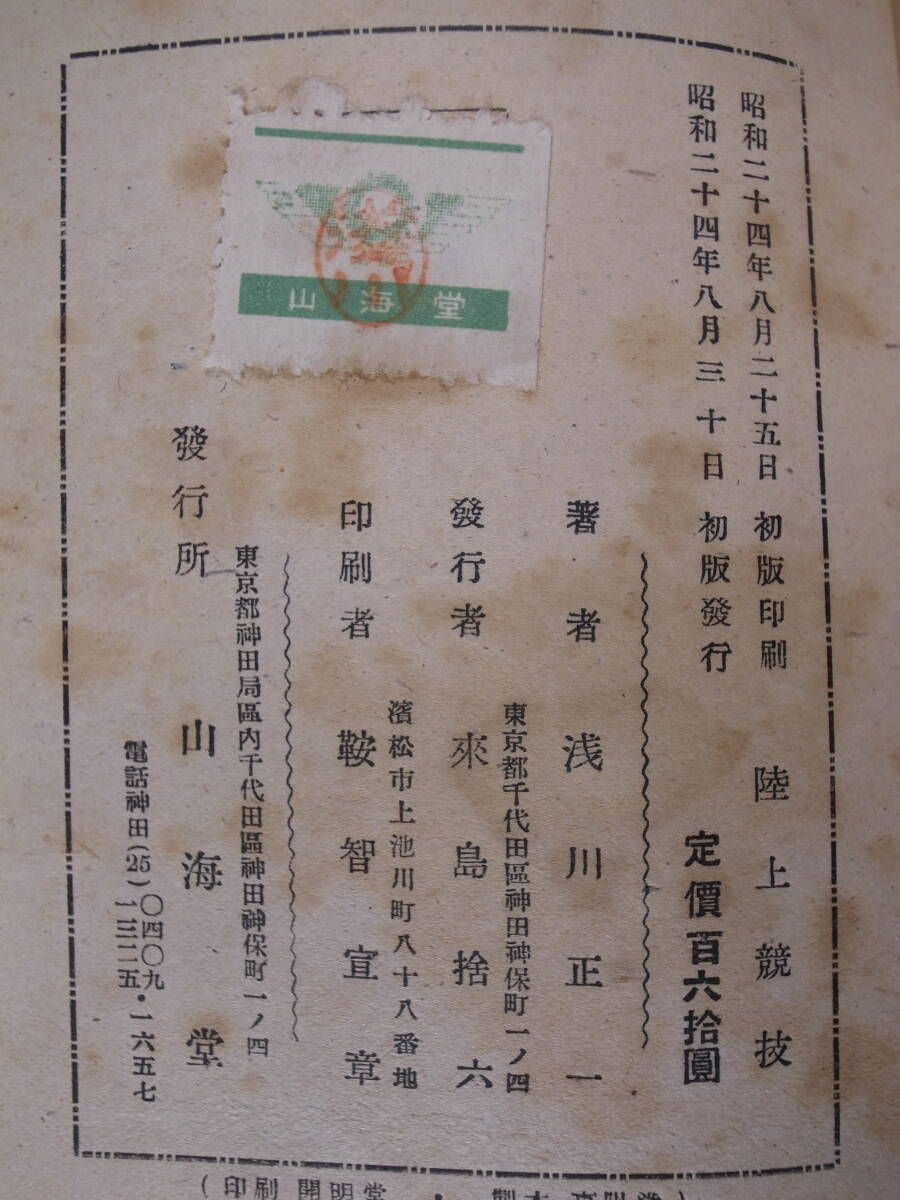 昭和二十四年八月二十五日 初版印刷
昭和二十四年八月三十日 初版發行
陸上競技
定價百六拾圓
著者 浅川正一
東京都千代田區神田神保町一ノ四
發行者 來島捨六
濱松市上池川町八十八番地
印刷者 鞍智宣章
東京都神田局區內千代田區神田神保町一ノ四
發行所 山海堂
電話神田(25)〇四〇九
一三二五・一六五七
山海堂
(印刷 開明堂 ・ 製本